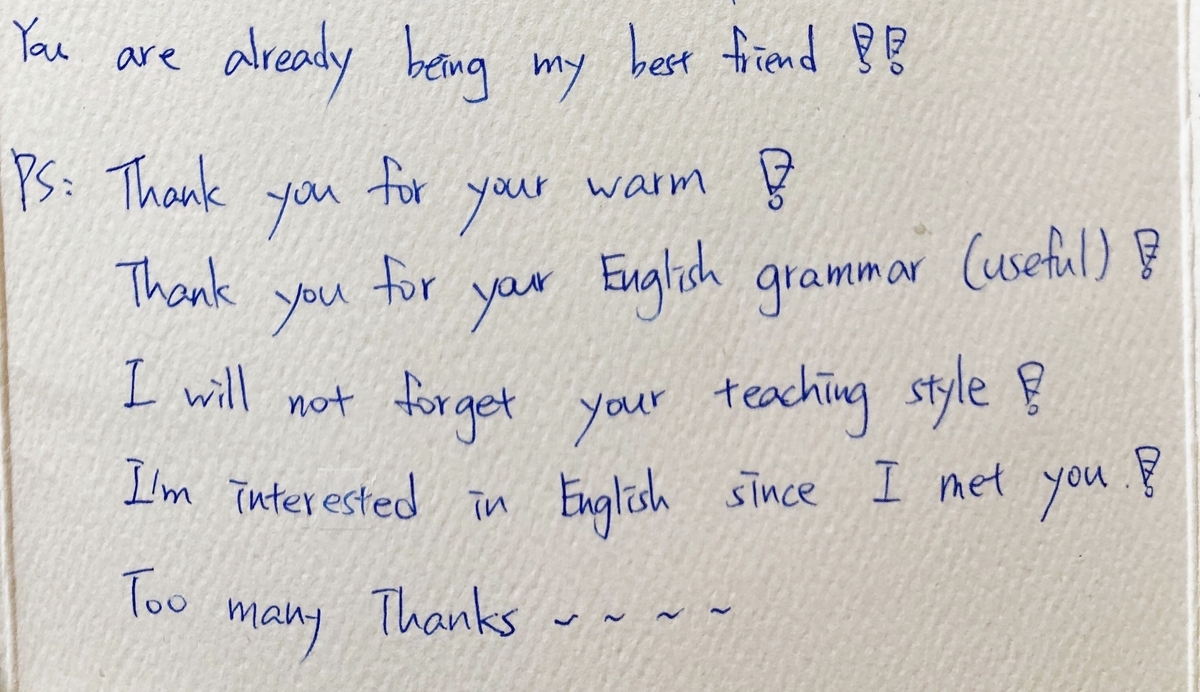 You are already being my best friend !!
PS: Thank you for your warm !
Thank you for your English grammar (useful) !
I will not forget your teaching style !
I'm interested in English since I met you. !
Too many Thanks ~ ~ ~ ~